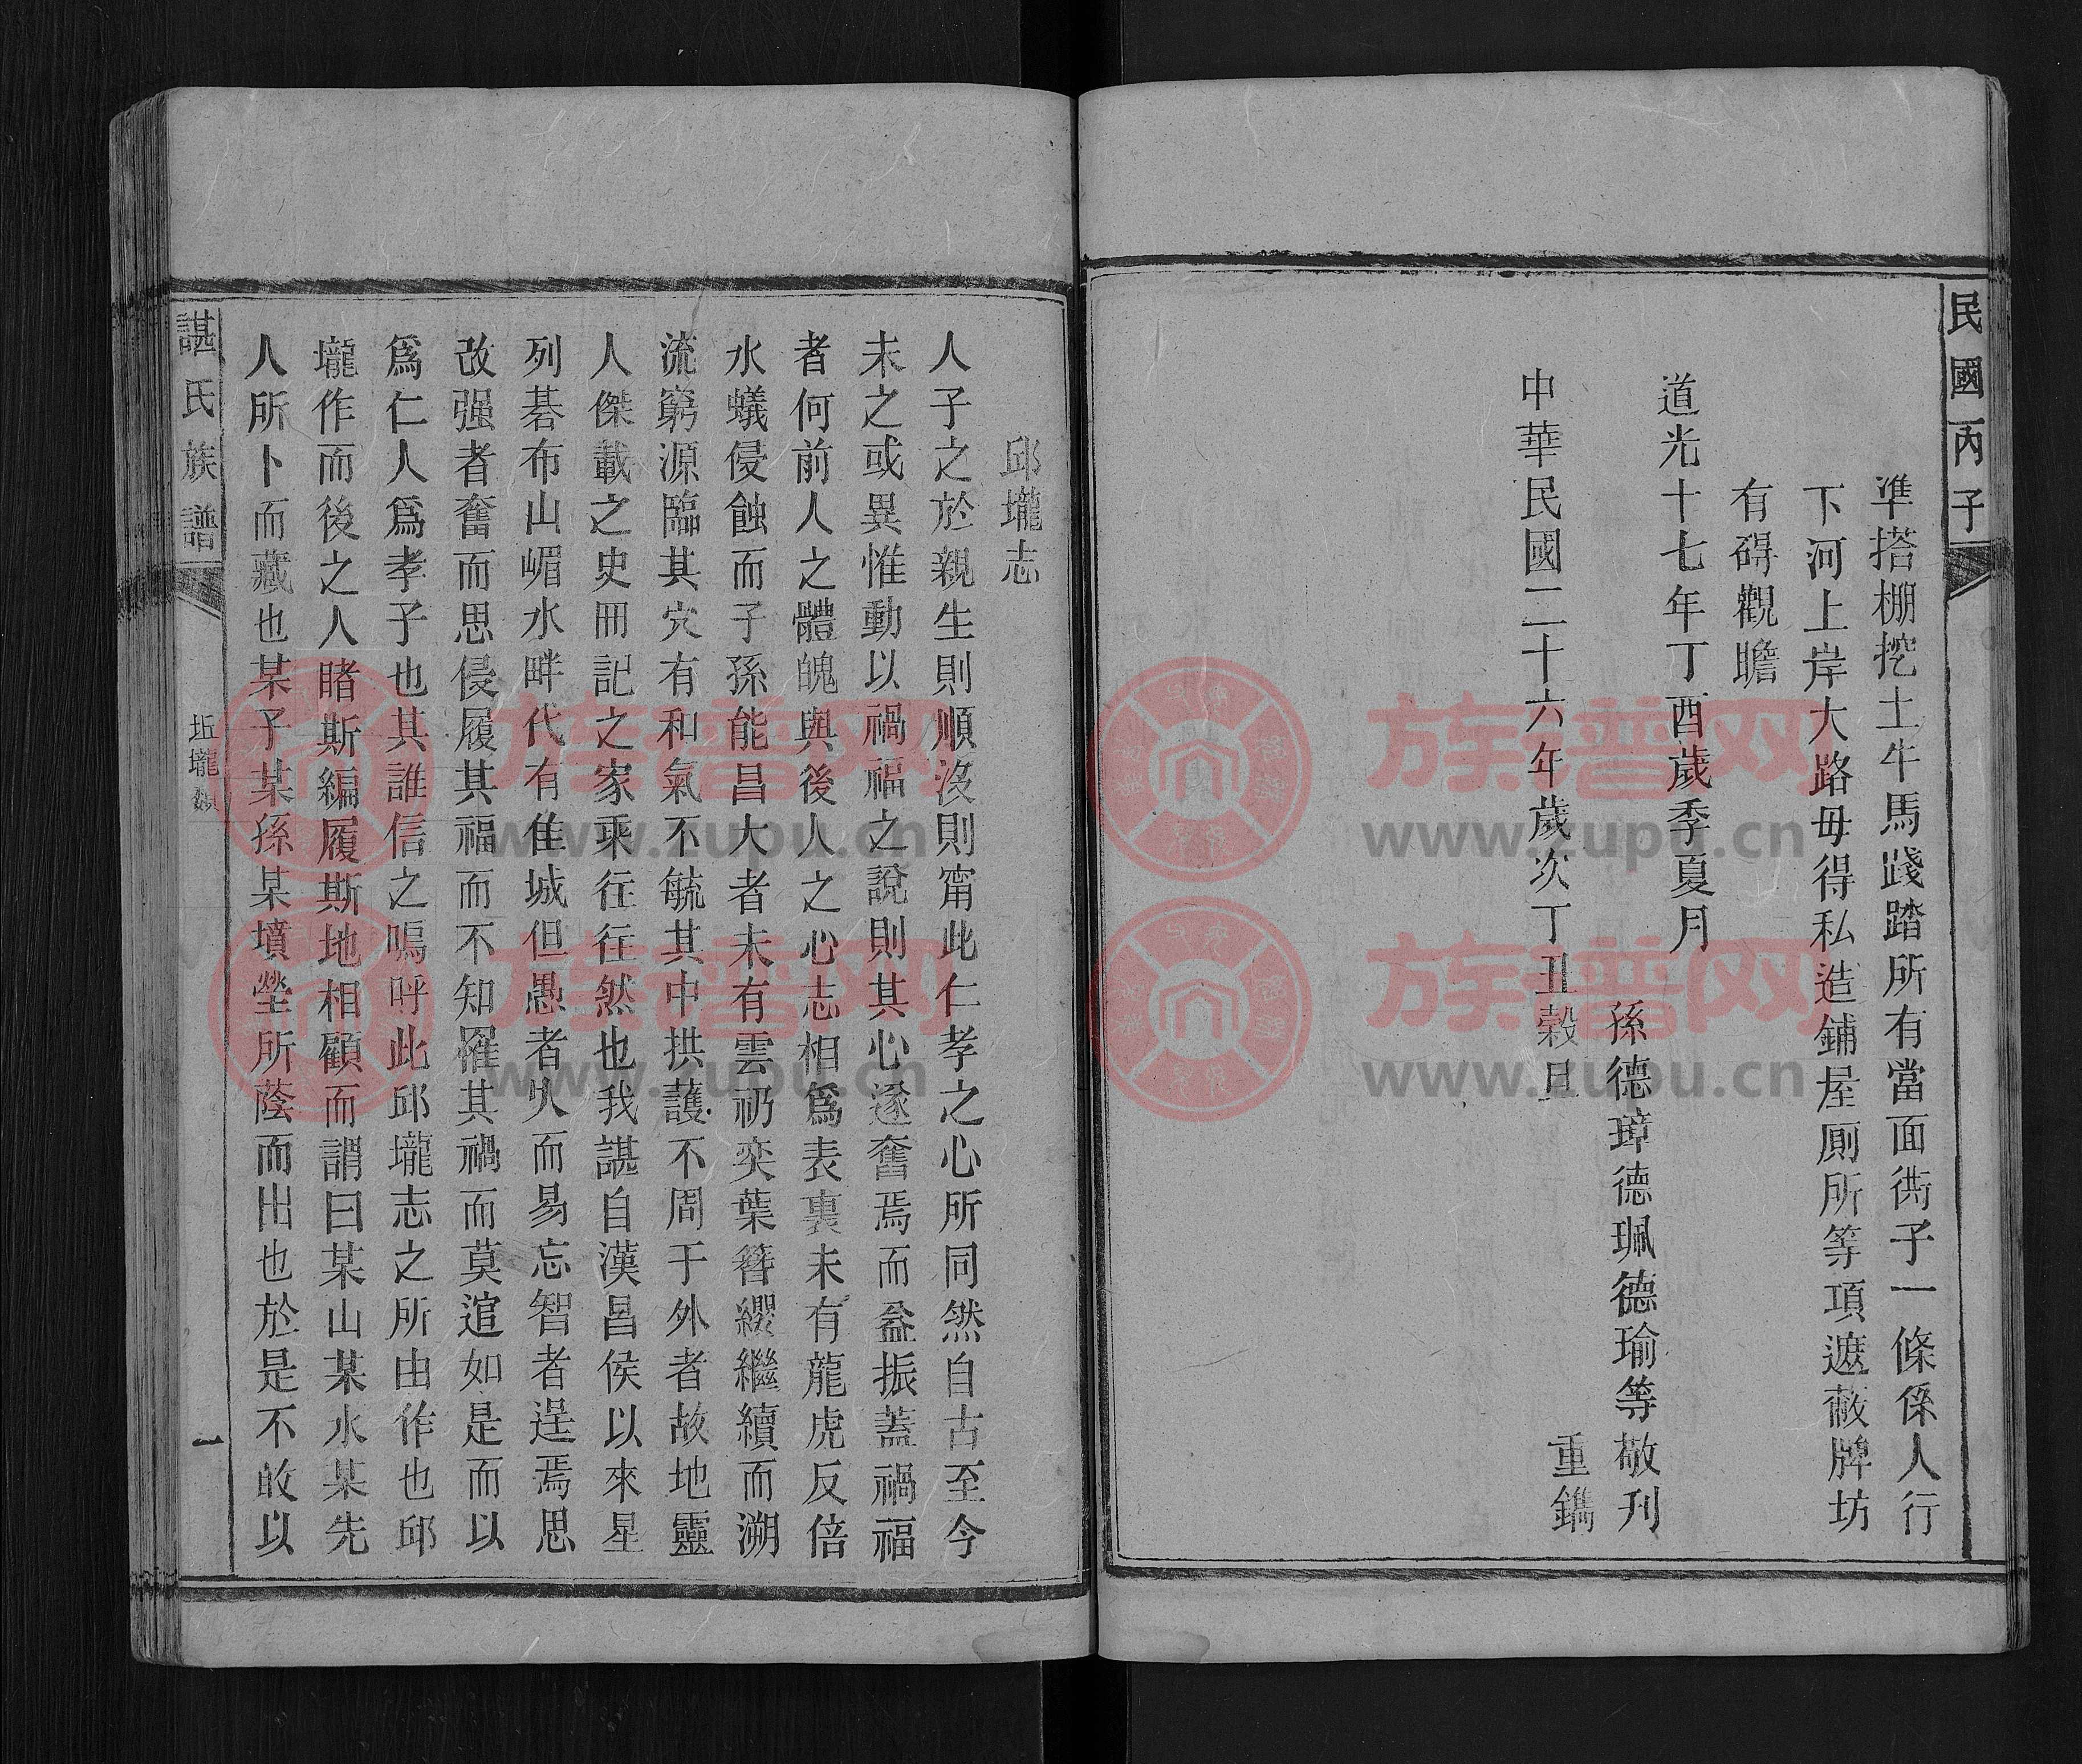 民國丙子
準搭棚挖土牛馬踐踏所有當面衖子一條係人行
下河上岸大路毋得私造鋪屋厠所等項遮蔽牌坊
有碍觀瞻
道光十七年丁酉歲季夏月
孫德璋德珮德瑜等敬刊
中華民國二十六年歲次丁丑榖旦
重鐫
邱壠志
人子之於親生則順沒則甯此仁孝之心所同然自古至今
未之或異惟動以禍福之說則其心遂奮焉而益振蓋禍福
者何前人之體魄與後人之心志相爲表裏未有龍虎反倍
水蟻侵蝕而子孫能昌大者未有雲礽奕葉簪纓繼續而溯
流窮源臨其穴有和氣不毓其中拱護不周于外者故地靈
人傑載之史冊記之家乘往往然也我諶自漢昌侯以來星
列碁布山嵋水畔代有佳城但愚者乆而易忘智者逞焉思
改强者奮而思侵履其福而不知罹其禍而莫逭如是而以
爲仁人爲孝子也其誰信之嗚呼此邱壠志之所由作也邱
壠作而後之人睹斯編履斯地相顧而謂曰某山某水某先
人所卜而藏也某子某孫某墳塋所蔭而出也於是不敢以
諶氏族譜
坵壠𩔗
一
族谱网
www.zupu.cn
族谱网
www.zupu.cn
族谱网
www.zupu.cn
族谱网
www.zupu.cn